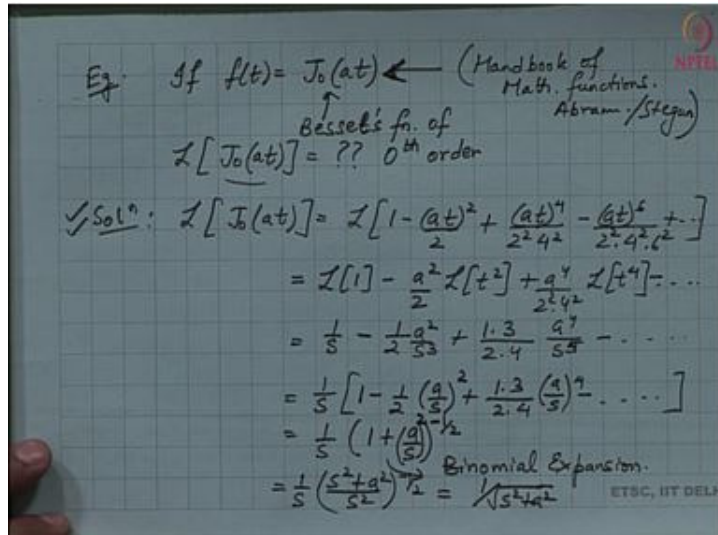 Eg. If f(t) = J₀(at) ← (Handbook of
NPTEL
Math. functions.
Abram./Stegun)
↑
Bessel's fn. of
ℒ[J₀(at)] = ?? 0th order
✓Solⁿ: ℒ[J₀(at)] = ℒ[1 - (at)²/2 + (at)⁴/2²·4² - (at)⁶/2²·4²·6² + ..]
= ℒ[1] - a²/2 ℒ[t²] + a⁴/2²·4² ℒ[t⁴] - ...
= 1/s - 1/2 a²/s³ + 1.3/2.4 a⁴/s⁵ - ....
= 1/s [1 - 1/2 (a/s)² + 1.3/2.4 (a/s)⁴ - ....]
= 1/s (1 + (a/s)²)^-1/2
Binomial Expansion.
= 1/s (s²+a²/s²)^-1/2 = 1/√s²+a²
ETSC, IIT DELH